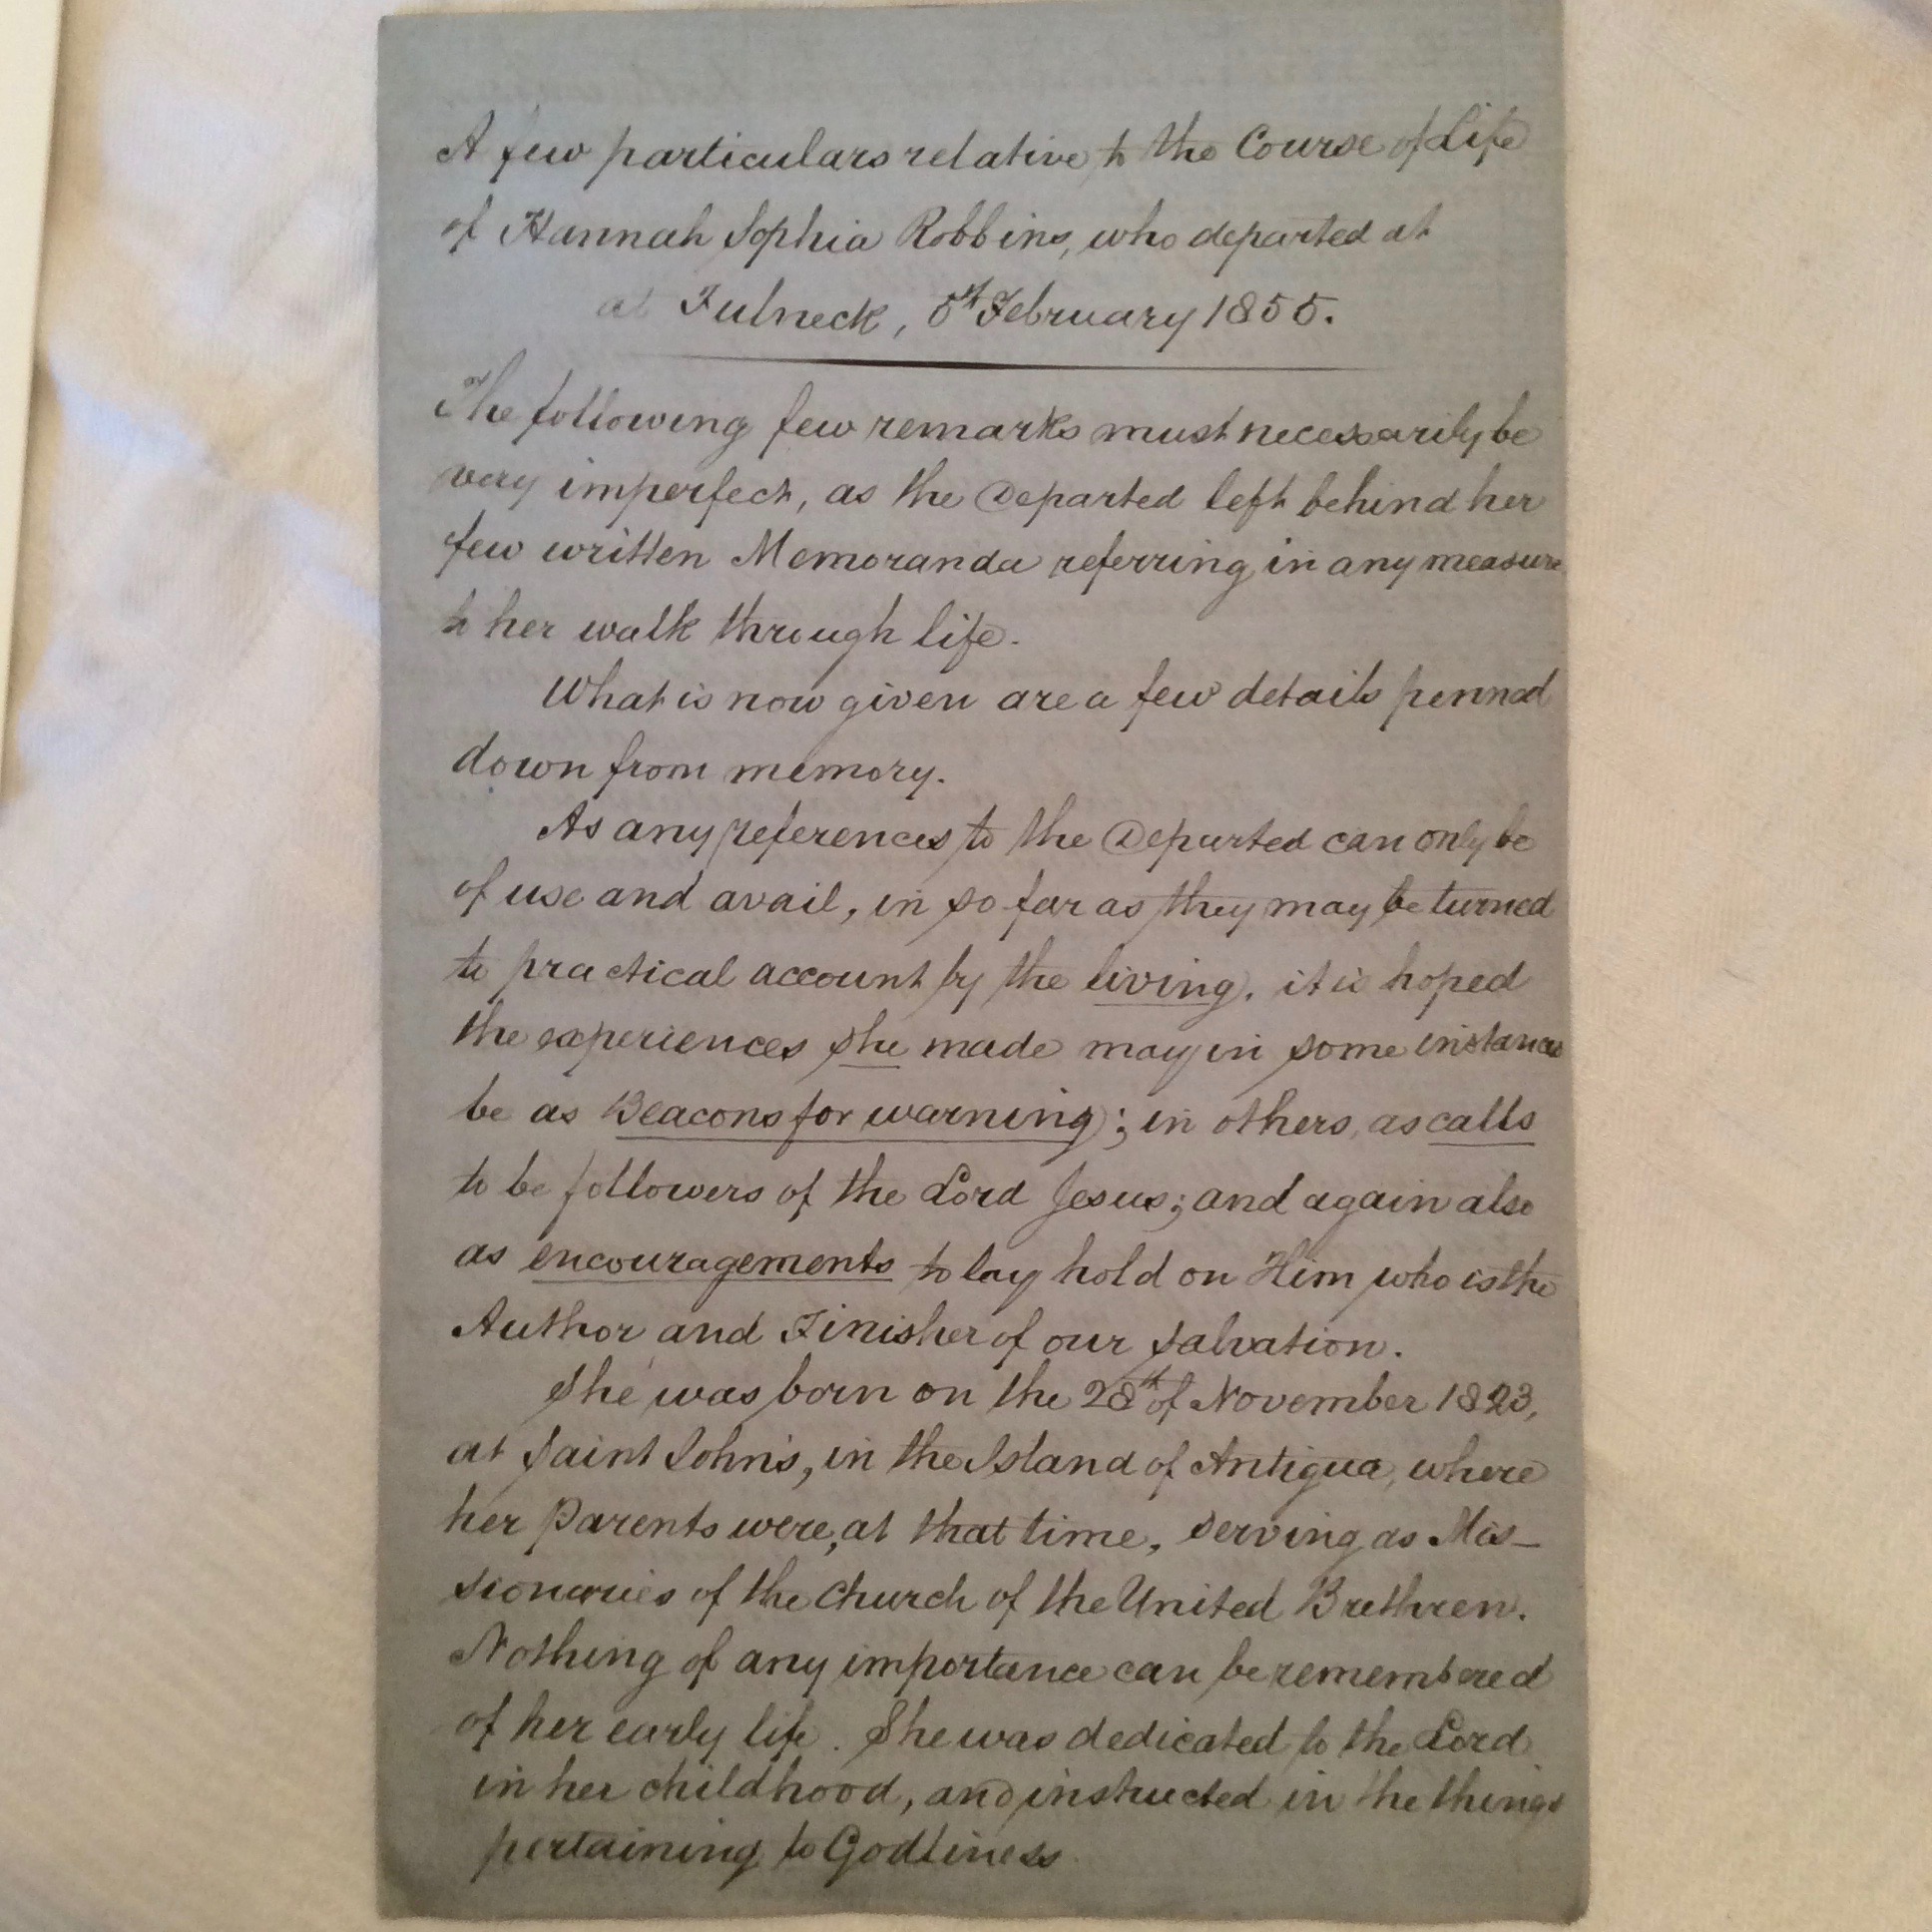 A few particulars relative to the Course of Life
of Hannah Sophia Robbins, who departed at
at Fulneck, 5th February 1855.
The following few remarks must necessarily be
very imperfect, as the Departed left behind her
few written Memoranda referring in any measure
to her walk through life.
What is now given are a few details penned
down from memory.
As any references to the Departed can only be
of use and avail, in so far as they may be turned
to practical account by the living, it is hoped
the experiences she made may in some instances
be as Beacons for warning; in others, as calls
to be followers of the Lord Jesus; and again also
as encouragements to lay hold on Him who is the
Author and Finisher of our Salvation.
She was born on the 28th of November 1823,
at Saint John's, in the Island of Antigua, where
her Parents were, at that time, serving as Mis-
sionaries of the Church of the United Brethren.
Nothing of any importance can be remembered
of her early life. She was dedicated to the Lord
in her childhood, and instructed in the things
pertaining to Godliness